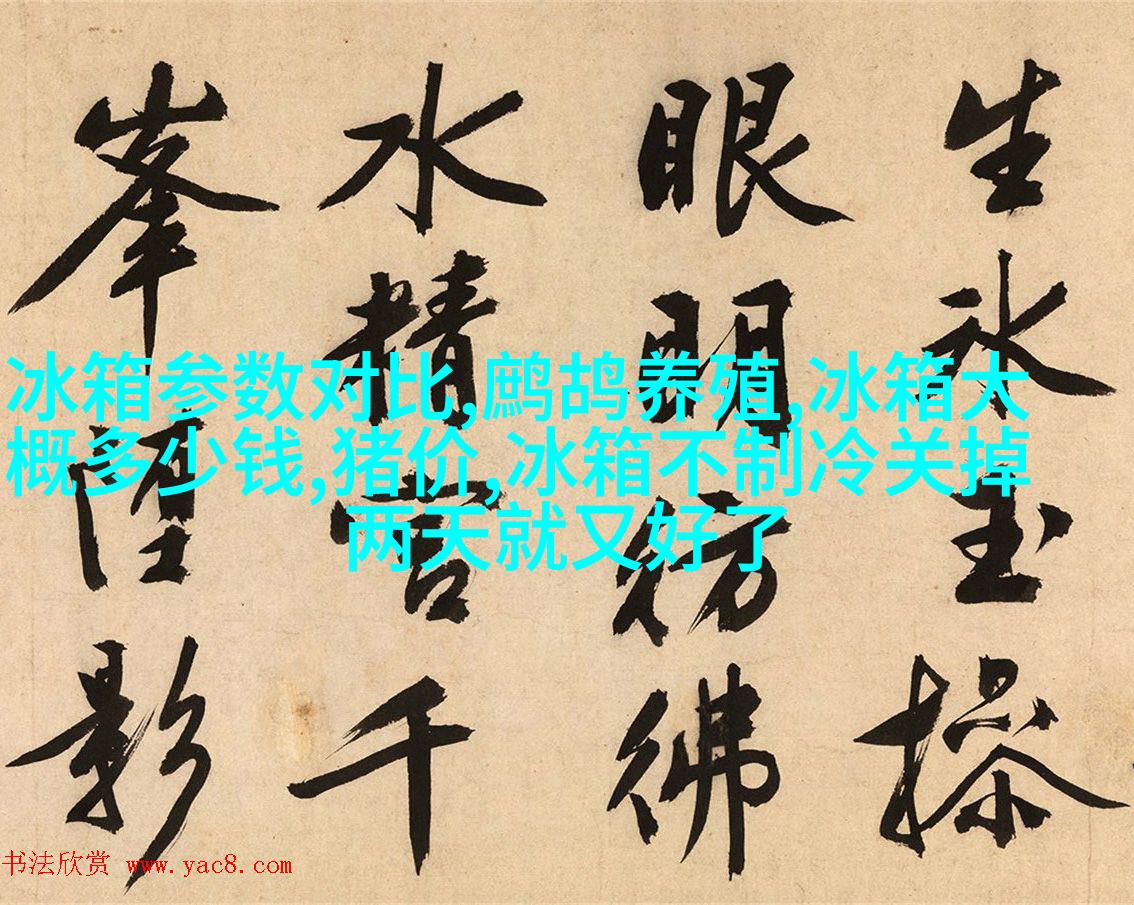 生冰玉操
眼明彷彿
水精宮千
峯陻影
冰箱参数对比,鹧鸪养殖,冰箱大
概多少钱,猪价,冰箱不制冷关掉
两天就又好了
书法欣赏 www.yac8.com